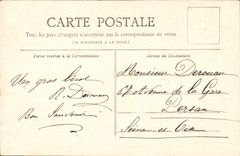 CARTE POSTALE
Tous les pays étrangers n'acceptent pas la correspondance au verso.
(SE RENSEIGNER A LA POSTE)
Partie réservée à la Correspondance
Adresse du Destinataire
Un gros baiser
R.
Bon Souvenir
Monsieur Derouan
67 Avenue de la Gare
Persan
Seine et Oise